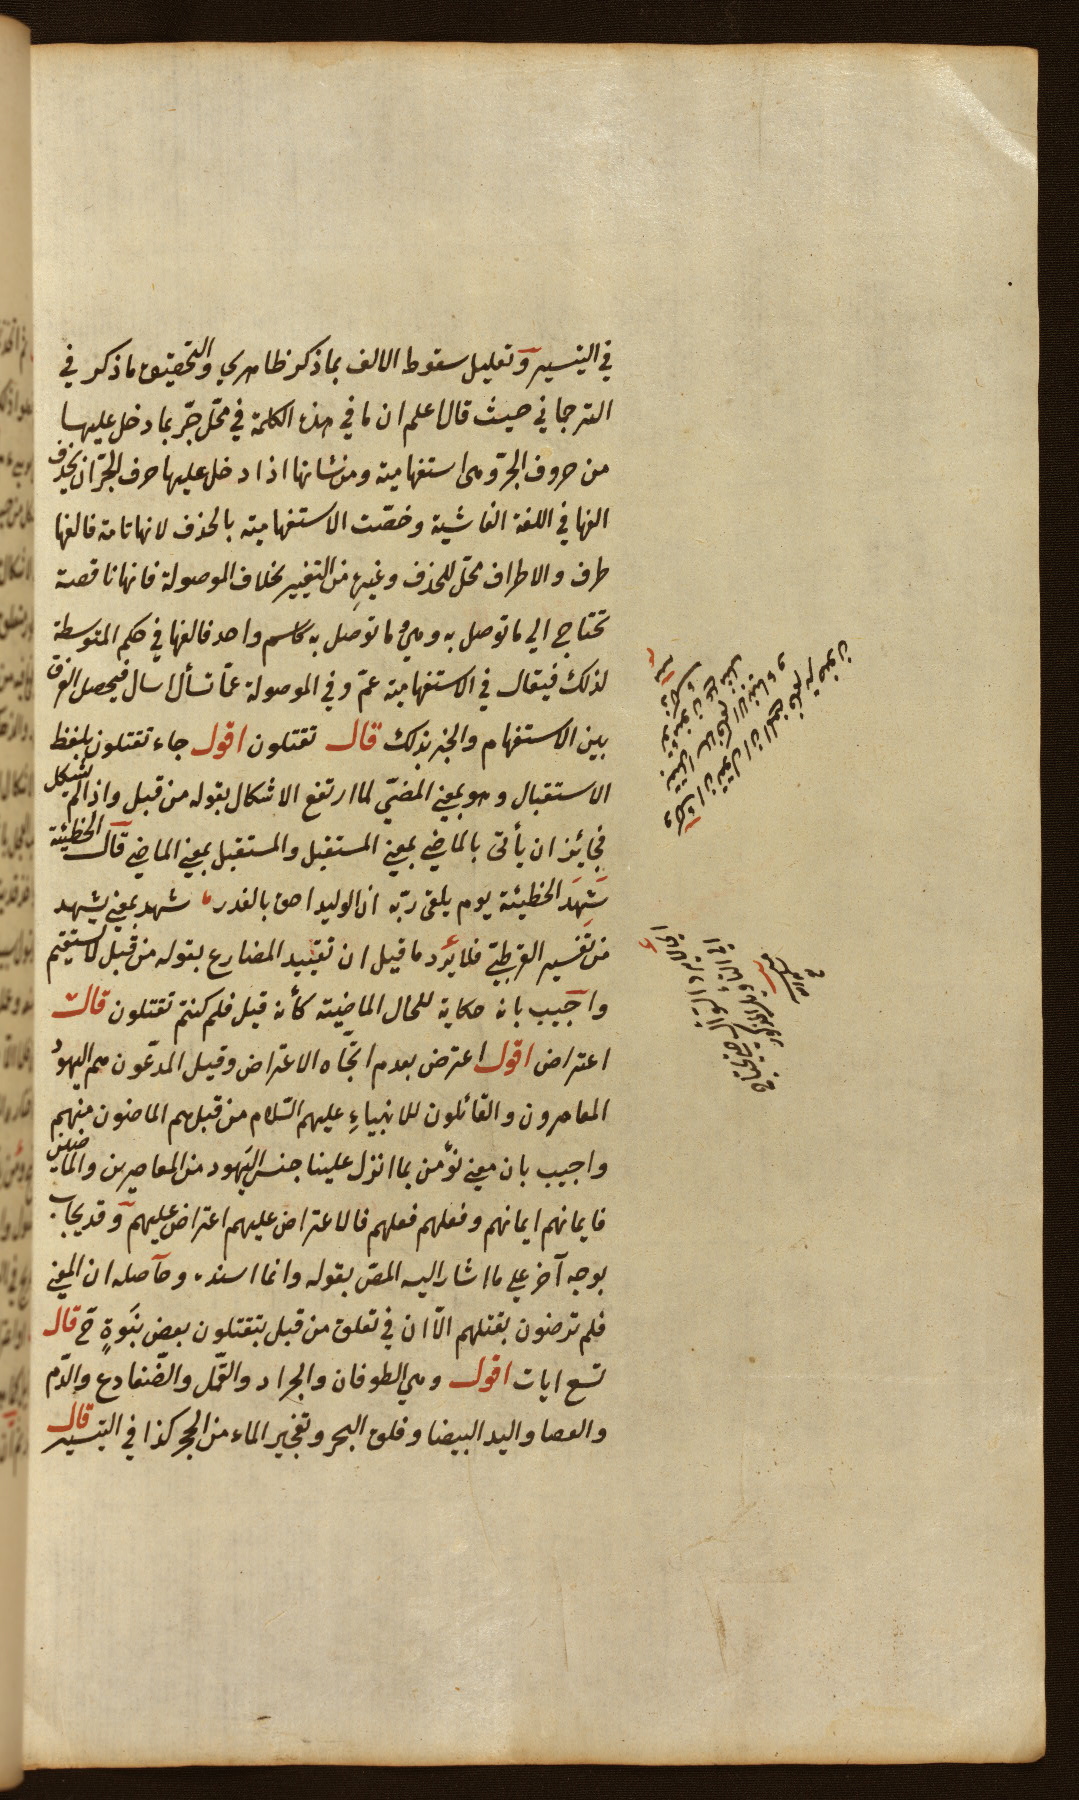 في التيسير وتعليل سقوط الالف بما ذكر ظاهري والتحقيق ما ذكر في
الترجماني حيث قال اعلم ان ما في هذه الكلمة في محلّ جرّ بما دخل عليها
من حروف الجرّ وهي استفهامية ومن شانها اذا دخل عليها حرف الجرّ ان يحذف
الفها في اللغة الفاشية وخصّت الاستفهامية بالحذف لانها تامة فالفها
طرف والاطراف محلّ للحذف وغيره من التغيير بخلاف الموصولة فانها ناقصة
تحتاج الي ما توصل به وهي وما توصل به كاسم واحد فالفها في حكم المتوسطة
لذلك فيقال في الاستفهامية عمّ وفي الموصولة عمّا تسأل اسال فيحصل الفرق
بين الاستفهام والخبر بذلك قال تقتلون اقول جاء تقتلون بلفظ
الاستقبال وهو بمعني المضيّ لما ارتفع الاشكال بقوله من قبل واذا لم يشكل
فجائز ان يأتى بالماضي بمعني المستقبل والمستقبل بمعني الماضي قال الخطيئة
شَهِدَ الخطيئة يوم يلقى ربّه ان الوليد احق بالغدر شهد بمعني يشهد
من تفسير القرطبيّ فلا يَرد ما قيل ان تقييد المضارع بقوله من قَبل لا يستقيم
واجيب بانه حكاية للحال الماضية كأنه قيل فلم كنتم تقتلون قال
اعتراض اقول اعترض بعدم اتّجاه الاعتراض وقيل المدّعون هم اليهود
المعاصرون والقائلون للانبياءِ عليهم السّلام من قبلهم الماضون منهم
واجيب بان معني نؤمن بما انزل علينا جنس اليَهود من المعاصرين والماضين
فايمانهم ايمانهم وفعلهم فعلهم فالاعتراض عليهم اعتراض عليهم وقد يجاب
بوجه آخر علي ما اشار اليه المصّ بقوله وانما اسنده وحاصله ان المعني
فلم ترضون بقتلهم الّا ان في تعلق من قبل بتقتلون بعض نَبوةٍ ح قال
تسع ايات اقول وهي الطوفان والجراد والقّمل والضّفادع والدّم
والعصا واليد البيضا وفلق البحر وتفجير الماء من الحجر كذا في التيسير قال